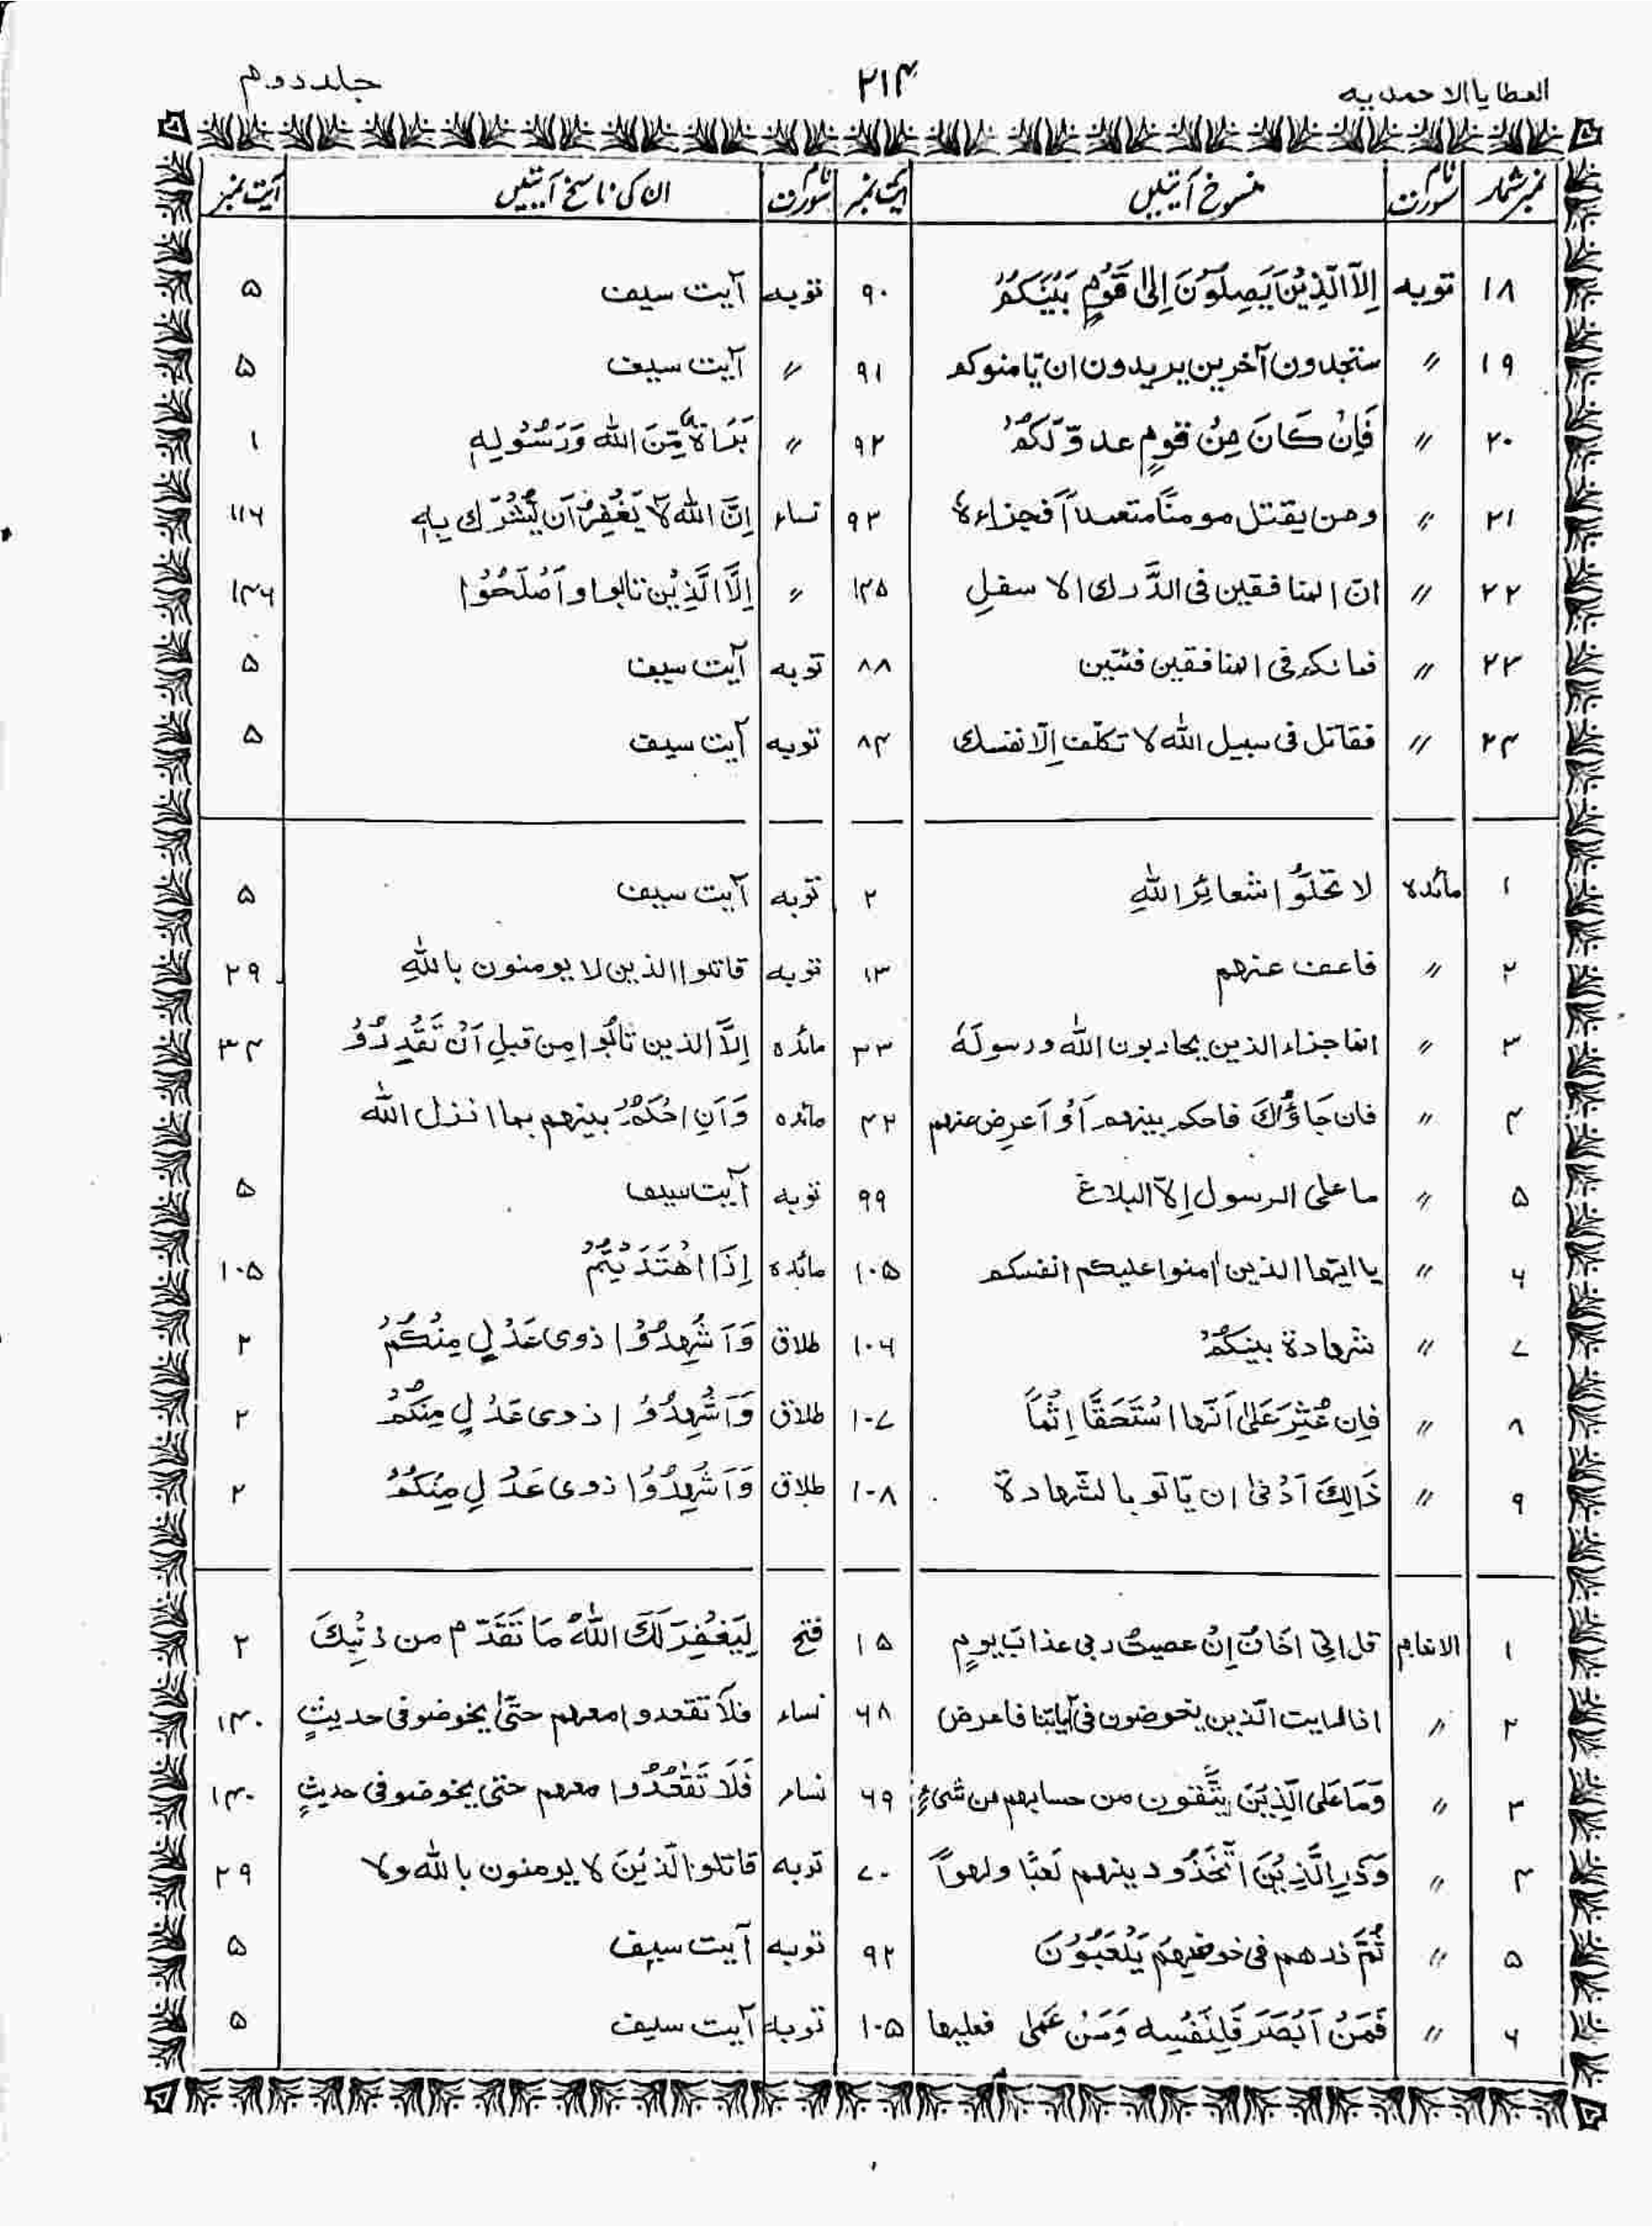 العطایا الاحمدیہ ۲۱۴ جلد دوم
نمبر شمار نام سورت منسوخ آیتیں آیت نمبر نام سورت ان کی ناسخ آیتیں آیت نمبر
۱۸ توبہ اِلَّا الَّذِیْنَ یَصِلُوْنَ اِلیٰ قَوْمٍ بَیْنَکُمْ ۹۰ توبہ آیت سیف ۵
۱۹ 〃 ستجدون آخرین یریدون ان یّامنوکم ۹۱ 〃 آیت سیف ۵
۲۰ 〃 فَاِنْ کَانَ مِنْ قومٍ عدوّ لَّکُمْ ۹۲ 〃 بَرَاۃٌ مِّنَ اللہ وَرَسُوْلِہٖ ۱
۲۱ 〃 ومن یقتل مومنًا متعمداً فجزاءہٗ ۹۳ نساء اِنَّ اللہ لَا یَغْفِرُ اَن یُّشْرَک بِہٖ ۱۱۶
۲۲ 〃 انّ المنافقین فی الدَّرک الاسفلِ ۱۴۵ 〃 اِلَّا الَّذِیْن تابوا و اَصْلَحُوْا ۱۴۶
۲۳ 〃 فمالکم فی المنافقین فئتین ۸۸ توبہ آیت سیف ۵
۲۴ 〃 فقاتل فی سبیل اللہ لا تکلّف اِلّا نفسک ۸۴ توبہ آیت سیف ۵
۱ مائدہ لا تحلّوا شعائِرَ اللہِ ۲ توبہ آیت سیف ۵
۲ 〃 فاعف عنہم ۱۳ توبہ قاتلوا الذین لا یومنون باللہِ ۲۹
۳ 〃 انما جزاء الذین یحاربون اللہ ورسولَہٗ ۳۳ مائدہ اِلَّا الذین تابُوا مِن قبلِ اَنْ تَقْدِرُوْ ۳۴
۴ 〃 فان جَاؤُکَ فاحکم بینہم اَوْ اَعرِض عنہم ۴۲ مائدہ وَ اَنِ احْکُمْ بینہم بما انزل اللہ
۵ 〃 ما علی الرسول اِلّا البلاغ ۹۹ توبہ آیت سیف ۵
۶ 〃 یا ایّہا الذین اٰمنوا علیکم انفسکم ۱۰۵ مائدہ اِذَا اھْتَدَیْتُمْ ۱۰۵
۷ 〃 شہادۃ بینِکُمْ ۱۰۶ طلاق وَ اَشْہِدُوْا ذوی عَدْلٍ مِنْکُمْ ۲
۸ 〃 فاِن عُثِرَ عَلیٰ اَنّہا اسْتَحَقَّا اِثْمًا ۱۰۷ طلاق وَ اَشْہِدُوْا ذوی عَدْلٍ مِنْکُمْ ۲
۹ 〃 ذَالِکَ اَدْنیٰ ان یّاتو بالشّہادۃ ۱۰۸ طلاق وَ اَشْہِدُوْا ذوی عَدْلٍ مِنْکُمْ ۲
۱ الانعام قل انی اخافُ اِنْ عصیتُ ربی عذابَ یومٍ ۱۵ فتح لِیَغْفِرَ لَکَ اللہُ مَا تَقَدَّم من ذنْبِکَ ۲
۲ 〃 اذا رایت الّذین یخوضون فی آیاتنا فاعرض ۶۸ نساء فلَا تقعدوا معہم حتّیٰ یخوضو فی حدیثٍ ۱۴۰
۳ 〃 وَمَا عَلی الَّذِیْنَ یَتَّقون من حسابہم من شیءٍ ۶۹ نساء فَلَا تَقْعُدُوا معہم حتی یخوضو فی حدیثٍ ۱۴۰
۴ 〃 وَذَرِ الَّذِیْنَ اتَّخَذُو دینہم لَعبًا ولہواً ۷۰ توبہ قاتلو الَّذیْنَ لا یومنون باللہ ولا ۲۹
۵ 〃 ثُمَّ ذرہم فی خوضِہِمْ یَلْعَبُوْنَ ۹۲ توبہ آیت سیف ۵
۶ 〃 فَمَنْ اَبْصَرَ فَلِنَفْسِہ وَمَنْ عَمٰی فعلیہا ۱۰۵ توبہ آیت سیف ۵